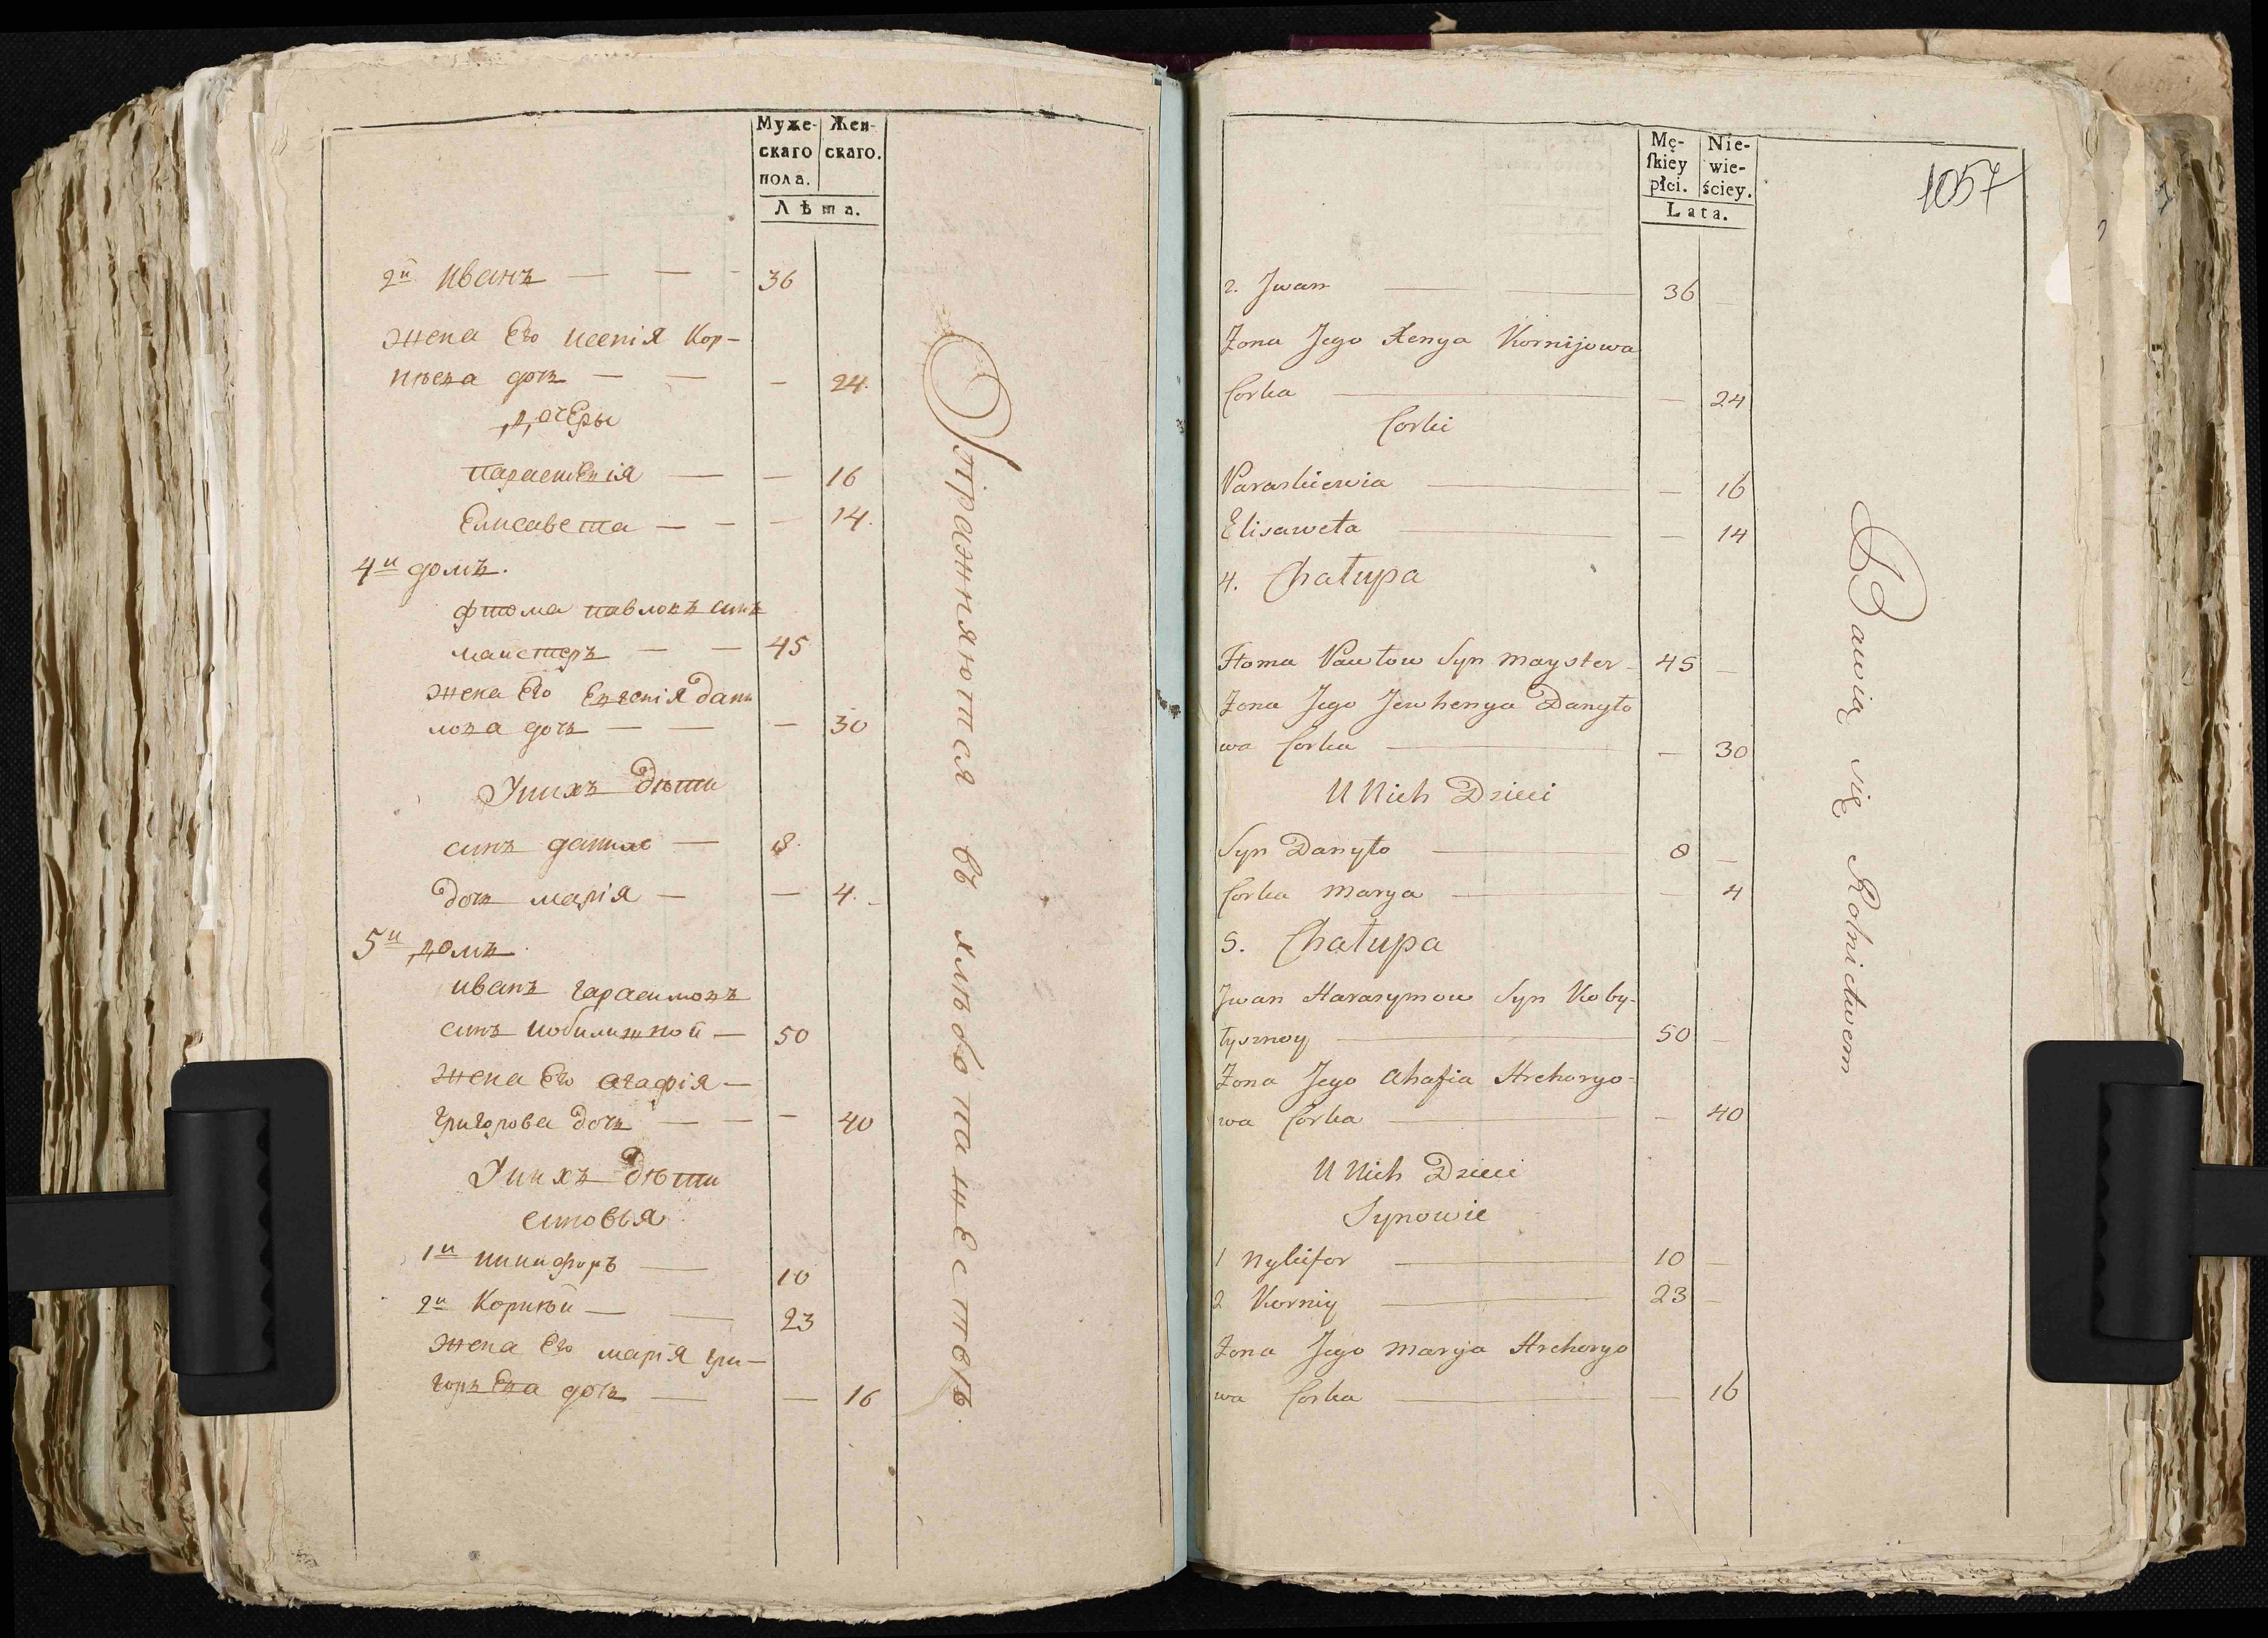 Муже-
скаго
пола.
Жен-
скаго.
Лѣта.
2й Иванъ — — - 36
жена Его Ксенія Кор-
нѣева дочъ — — — 24.
дочеры
параскевія — — 16
Елисавета — — — 14.
4й домъ.
фтома павловъ синъ
майстеръ — — 45
жена Его Евгенія Дани
лова дочъ — — — 30
Унихъ Дѣти
синъ данило — 8.
Дочъ марія — — 4.
5й домъ.
иванъ гарасимовъ
синъ кобилишной — 50
жена Его агафія —
григорова Дочъ — — — 40
Унихъ Дѣти
синовья
1й никифоръ — 10
2й Корнѣй — — 23
жена Его марія гри-
горѣева дочъ — — 16
Упражняются въ хлѣбопашествѣ.
Mę-
ſkiey
płci.
Nie-
wie-
ściey.
Lata.
1057
2. Jwan — — 36 —
Żona Jego Xenya Kornijowa
Corka — — 24
Corki
Paraskiewia — — 16
Elisaweta — — 14
4. Chałupa
Ftoma Pawłow Syn Mayster - 45 —
Żona Jego Jewhenya Danyło
wa Corka — — 30
U Nich Dzieci
Syn Danyło — 8 —
Corka Marya — — 4
5. Chałupa
Jwan Harasymow Syn Koby-
łysznoy — 50 —
Żona Jego Ahafia Hrehoryo-
wa Corka — — 40
U Nich Dzieci
Synowie
1 Nykifor — 10 —
2 Korniy — 23 —
Żona Jego Marya Hrehoryo
wa Corka — — 16
Bawią się Rolnictwem